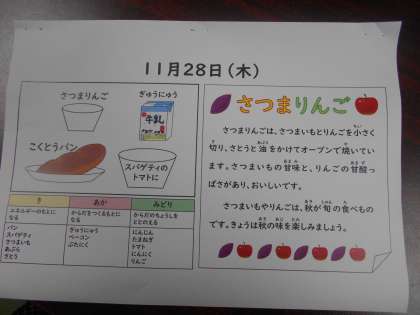 11月28日（木）
さつまりんご
ぎゅうにゅう
牛乳
こくとうパン
スパゲティの
トマトに
き
あか
みどり
エネルギーのもとに
なる
からだをつくるもとに
なる
からだのちょうしを
ととのえる
パン
スパゲティ
さつまいも
あぶら
さとう
ぎゅうにゅう
ベーコン
ぶたにく
にんじん
たまねぎ
トマト
にんにく
りんご
さつまりんご
さつまりんごは、さつまいもとりんごを小さく
切り、さとうと油をかけてオーブンで焼いてい
ます。さつまいもの甘味と、りんごの甘酸っ
ぱさがあり、おいしいです。
さつまいもやりんごは、秋が旬の食べもの
です。きょうは秋の味を楽しみましょう。